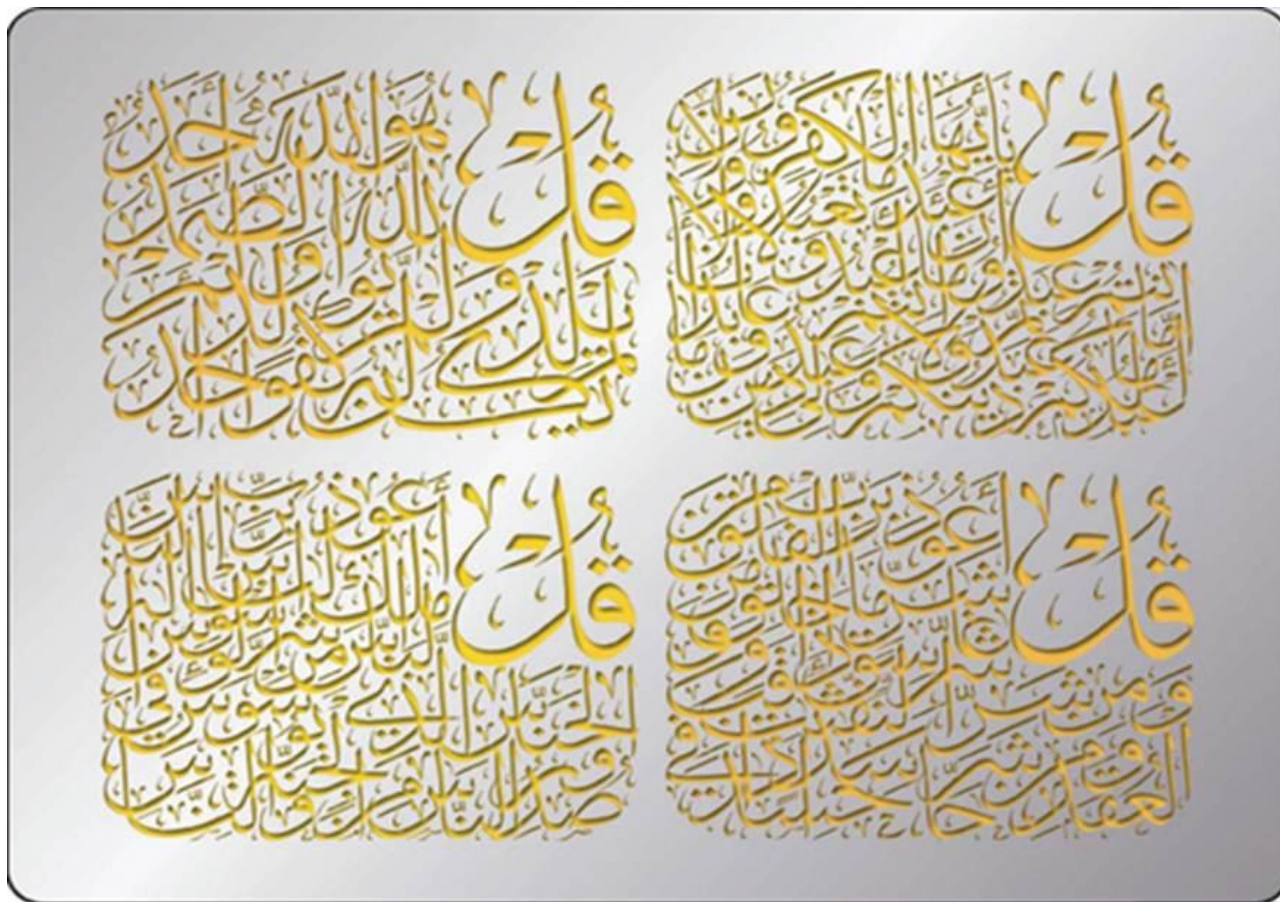 قُلْ يٰٓأَيُّهَا الْكٰفِرُونَ لَا
أَعْبُدُ مَا تَعْبُدُونَ وَلَا
أَنْتُمْ عٰبِدُونَ مَا أَعْبُدُ وَلَا أَنَا عَابِدٌ
مَا عَبَدْتُمْ وَلَا أَنْتُمْ عٰبِدُونَ مَا
أَعْبُدُ لَكُمْ دِينُكُمْ وَلِيَ دِينِ
قُلْ هُوَ اللّٰهُ أَحَدٌ
اللّٰهُ الصَّمَدُ
لَمْ يَلِدْ وَلَمْ يُولَدْ وَلَمْ
يَكُنْ لَهُ كُفُوًا أَحَدٌ
قُلْ أَعُوذُ بِرَبِّ الْفَلَقِ مِنْ
شَرِّ مَا خَلَقَ وَمِنْ
شَرِّ غَاسِقٍ إِذَا وَقَبَ
وَمِنْ شَرِّ النَّفّٰثٰتِ فِي
الْعُقَدِ وَمِنْ شَرِّ حَاسِدٍ إِذَا حَسَدَ
قُلْ أَعُوذُ بِرَبِّ النَّاسِ
مَلِكِ النَّاسِ إِلٰهِ
النَّاسِ مِنْ شَرِّ الْوَسْوَاسِ
الْخَنَّاسِ الَّذِي يُوَسْوِسُ فِي
صُدُورِ النَّاسِ مِنَ الْجِنَّةِ وَالنَّاسِ